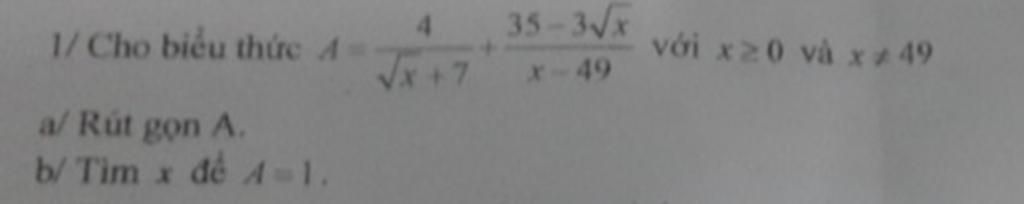 1/ Cho biểu thức A = \frac{4}{\sqrt{x}+7} + \frac{35-3\sqrt{x}}{x-49} với x ≥ 0 và x ≠ 49
a/ Rút gọn A.
b/ Tìm x để A = 1.